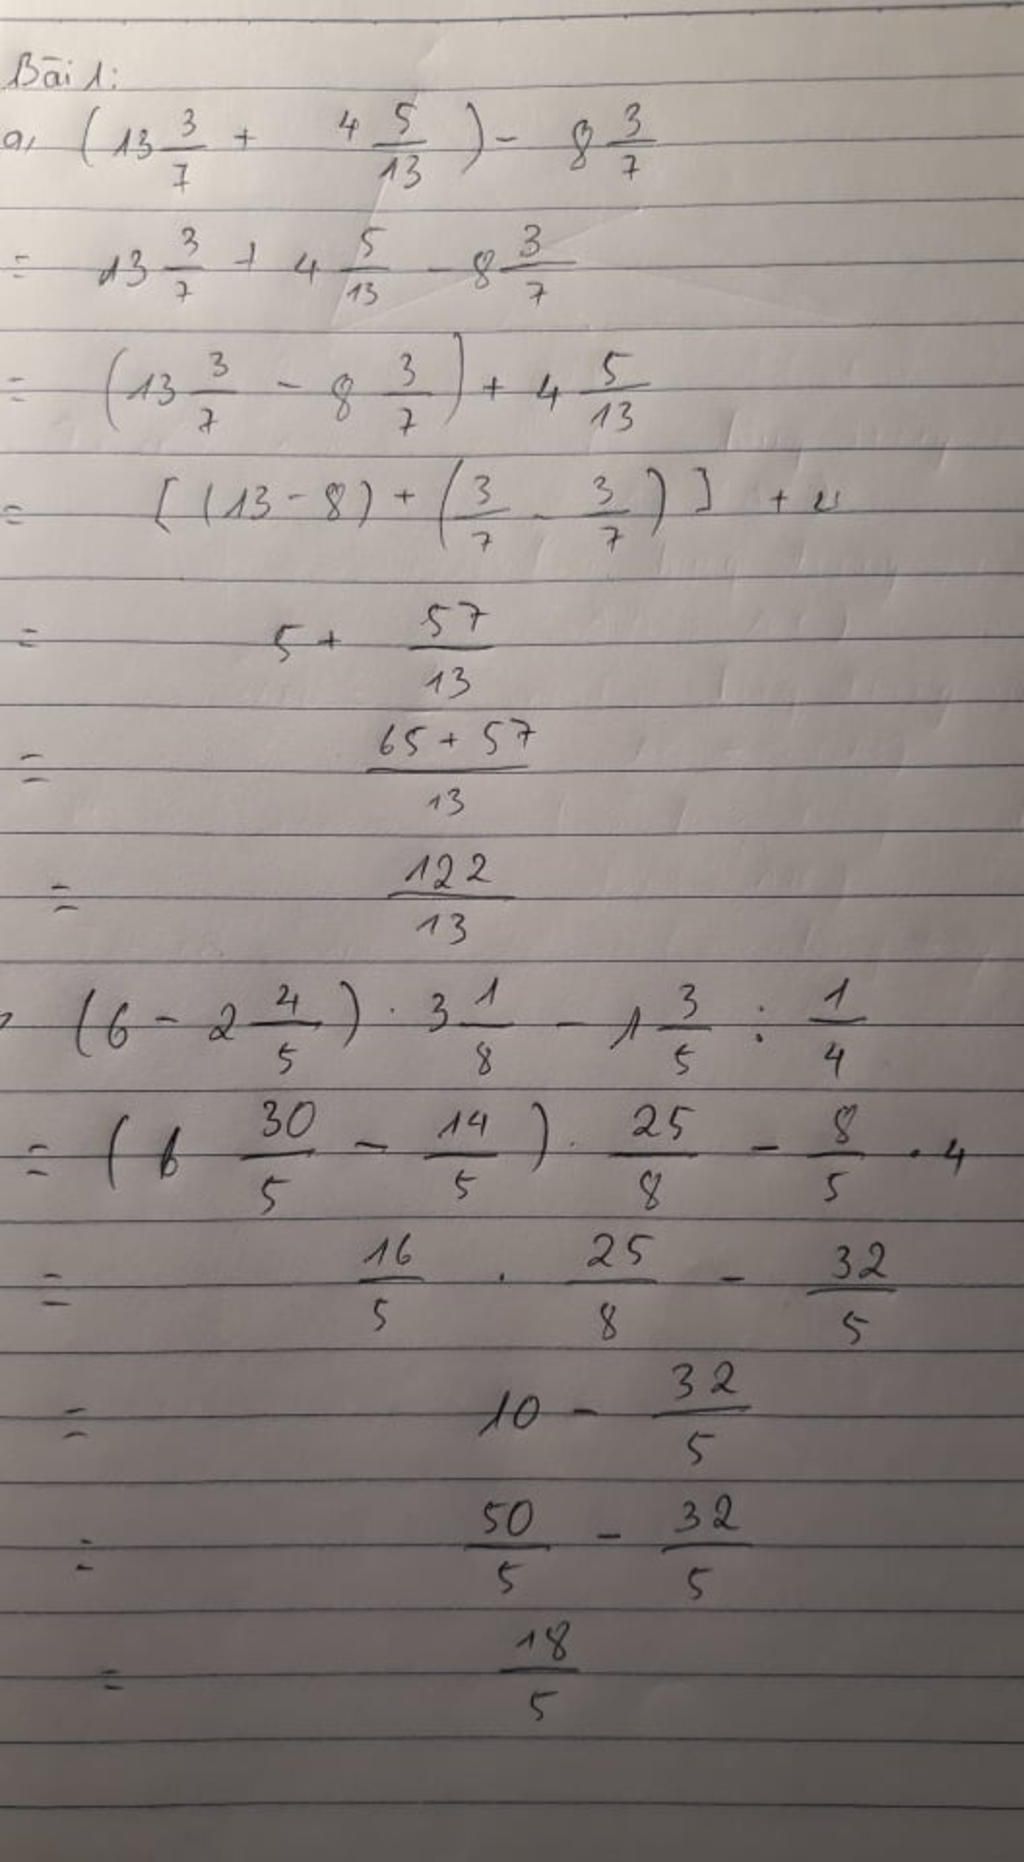 Bài 1:
a, (13 3/7 + 4 5/13) - 8 3/7
= 13 3/7 + 4 5/13 - 8 3/7
= (13 3/7 - 8 3/7) + 4 5/13
= [(13 - 8) + (3/7 - 3/7)] +
= 5 + 57/13
= 65 + 57/13
= 122/13
(6 - 2 4/5) . 3 1/8 - 1 3/5 : 1/4
= ( 30/5 - 14/5) . 25/8 - 8/5 . 4
= 16/5 . 25/8 - 32/5
= 10 - 32/5
= 50/5 - 32/5
= 18/5